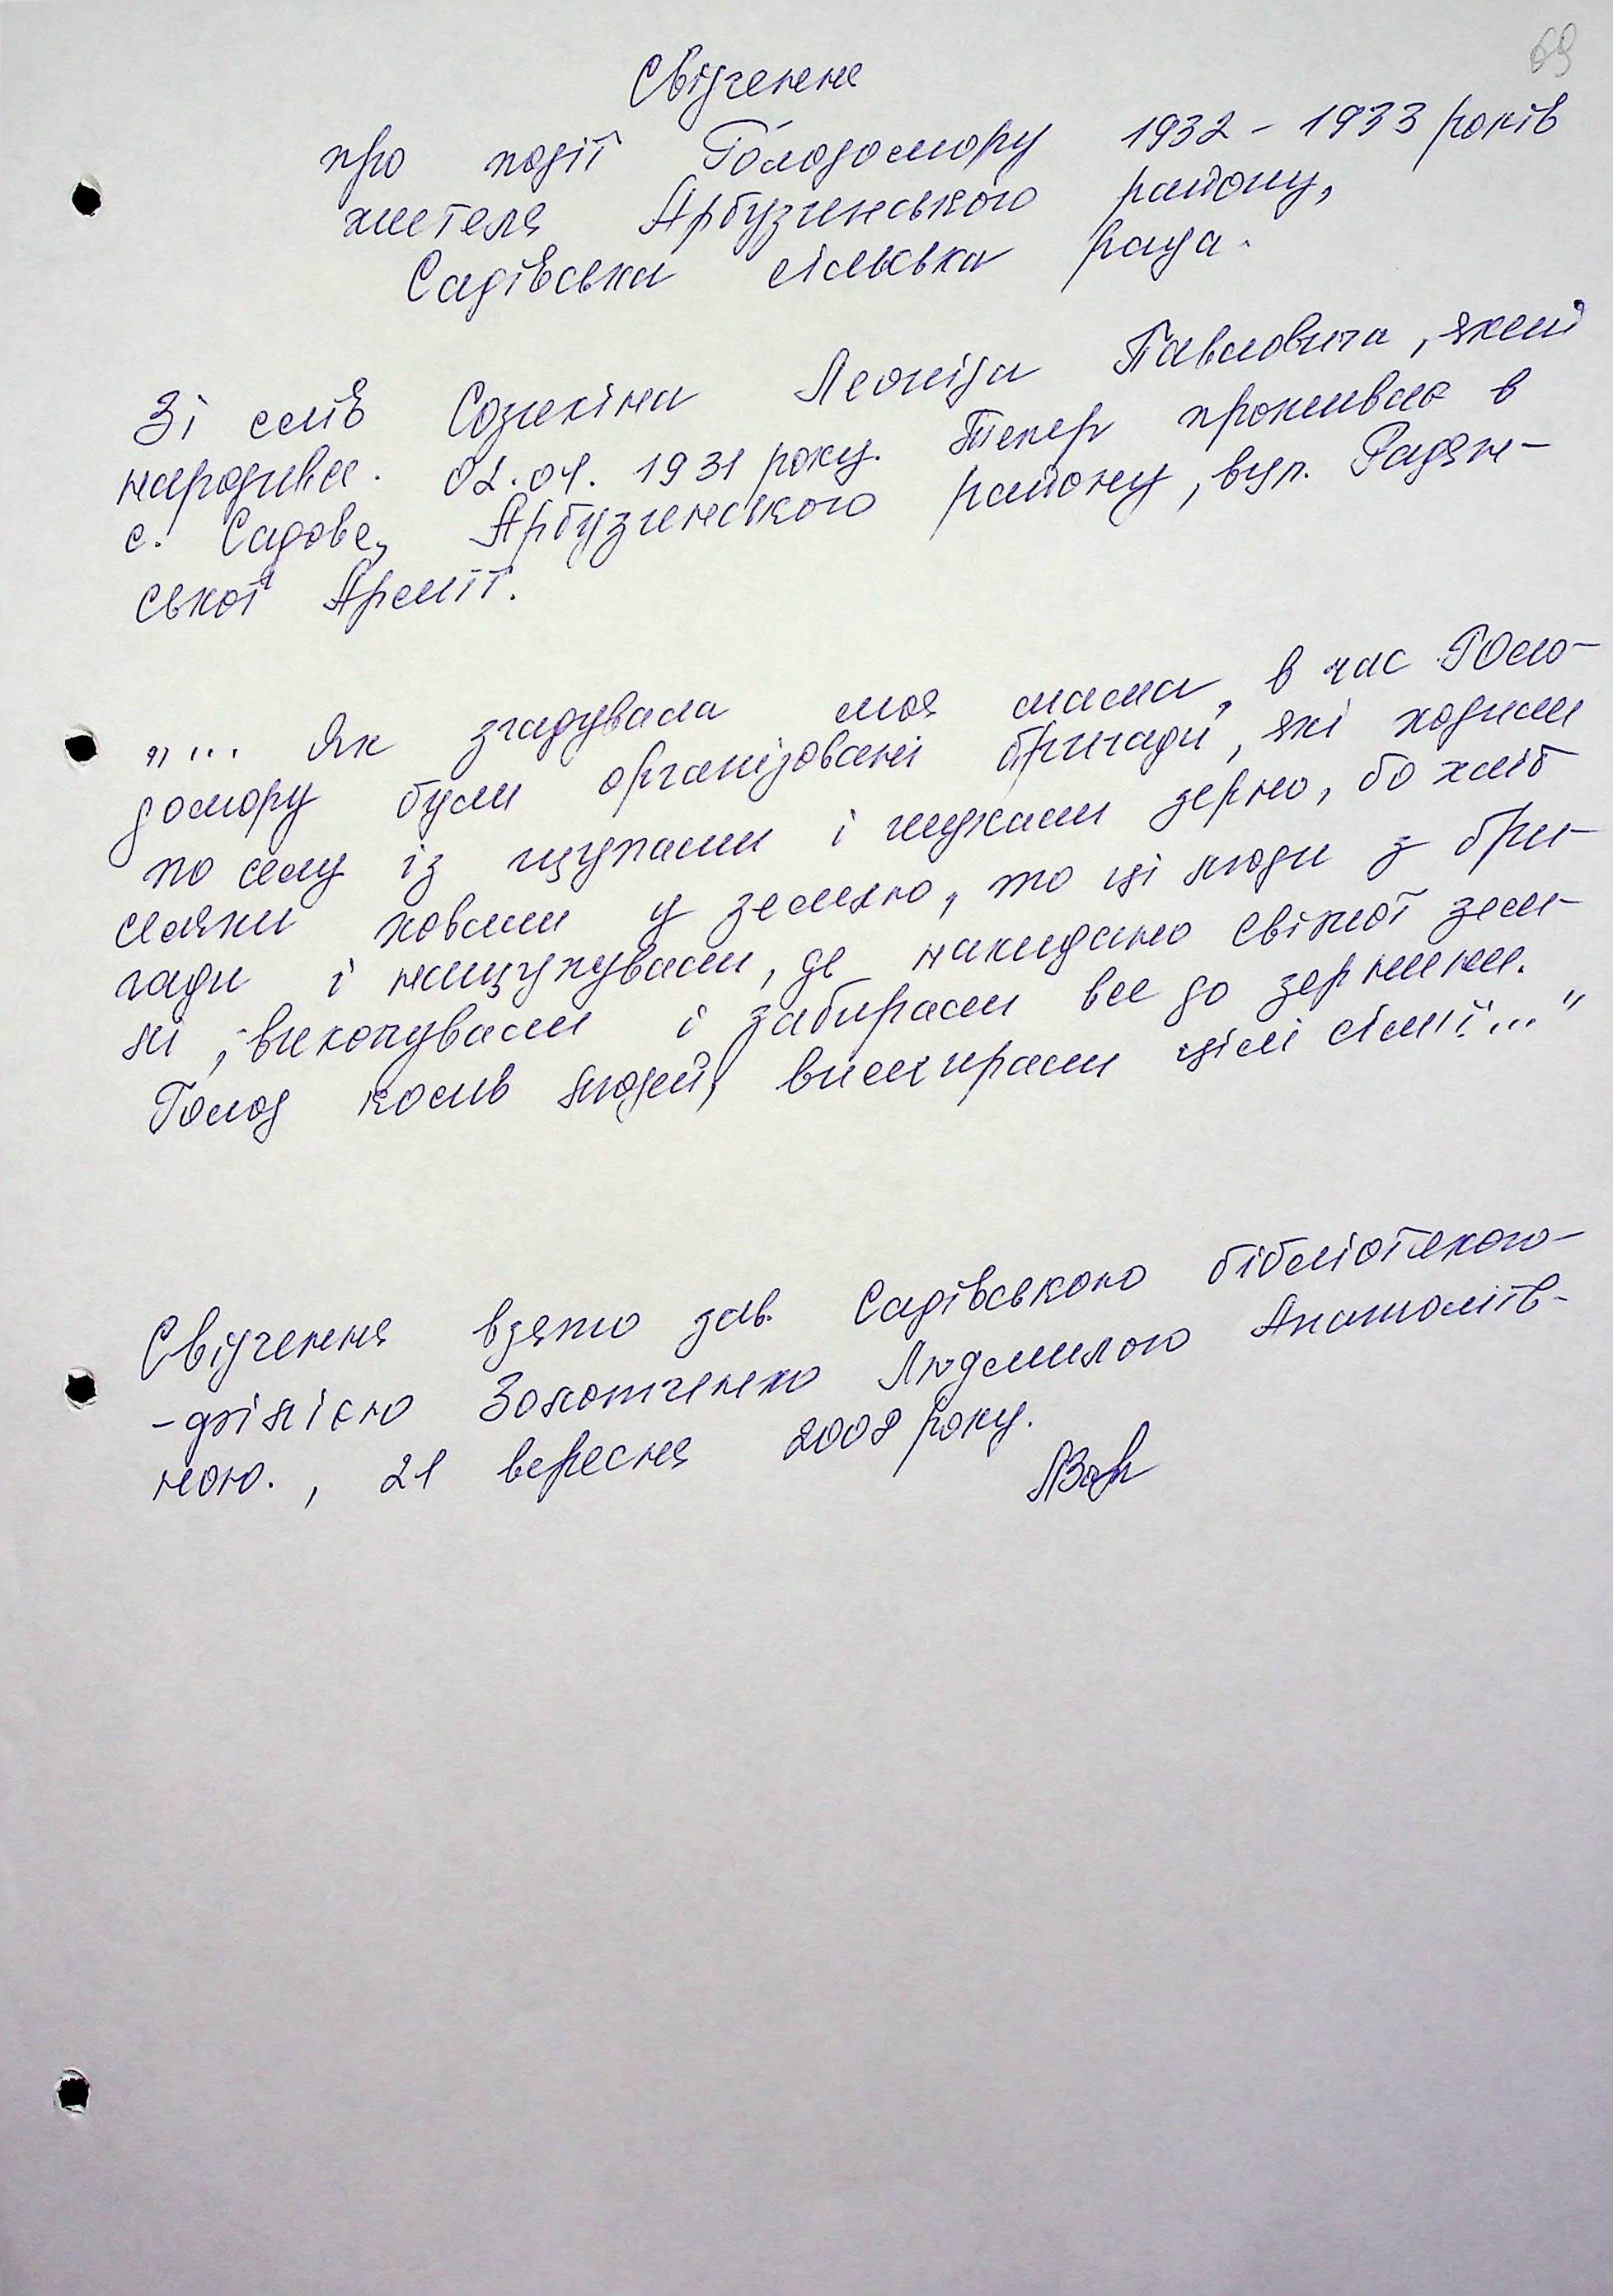 69
Свідчення
про події Голодомору 1932 - 1933 років
жителя Арбузинського району,
Садівська сільська рада.
Зі слів Созикіна Леоніда Павловича, який
народився. 02.04. 1931 року. Тепер проживає в
с. Садове, Арбузинського району, вул. Радян-
ської Армії.
„... Як згадувала моя мама, в час Голо-
домору були організовані бригади, які ходили
по селу із щупами і шукали зерно, бо хліб
селяни ховали у землю, то ці люди з бри-
гади і нащупували, де накидано свіжої зем-
лі, викопували і забирали все до зернини.
Голод косив людей, вимирали цілі сім'ї..."
Свідчення взято зав. Садівською бібліотекою-
-філією Золотченко Людмилою Анатоліїв-
ною. , 21 вересня 2008 року.